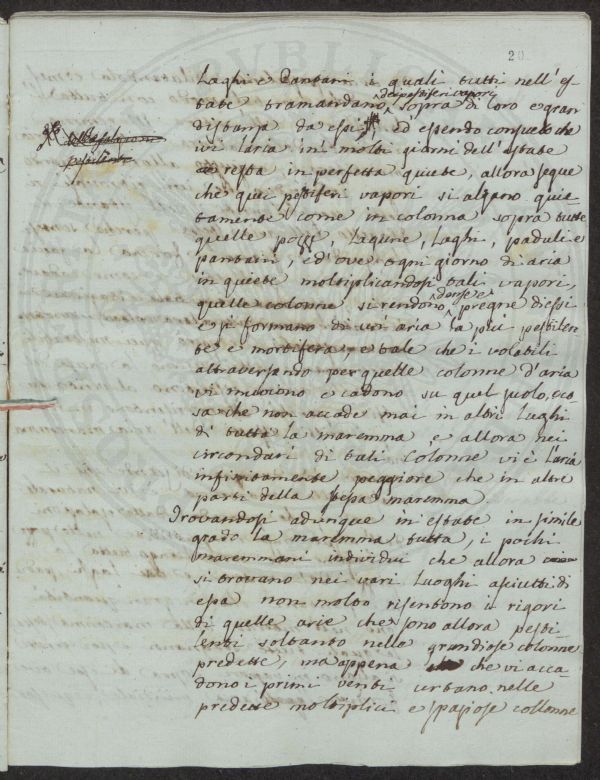 20
Laghi e Pantani i quali tutti nell'es-
tate tramandano dei pestiferi vapori sopra di loro e gran
distanza da essi ed essendo consueto che
ivi l'aria in molti giorni dell'estate
resta in perfetta quiete, allora segue
che quei pestiferi vapori si alzano quie
tamente come in colonna sopra tutte
quelle pozze, Lagune, Laghi, paduli e
pantani, ed ove ogni giorno di aria
in quiete moltiplicandosi tali vapori,
quelle colonne si rendono dense e pregne d'essi
e si formano di un'aria la più pestilen
te e mortifera, e tale che i volatili
attraversando per quelle colonne d'aria
vi muoiono e cadono su quel suolo, co
sa che non accade mai in altri luoghi
di tutta la maremma, e allora nei
circondari di tali Colonne vi è l'aria
infinitamente peggiore che in altre
parti della stessa maremma
Trovandosi adunque in estate in simile
grado la maremma tutta, i pochi
maremmani individui che allora
si trovano nei vari Luoghi asciutti di
essa non molto risentono i rigori
di quelle arie che sono allora pesti-
lenti soltanto nelle grandiose colonne
predette, ma appena che vi acca-
dono i primi venti urtano nelle
predette moltiplici e spaziose collonne
pestilenti